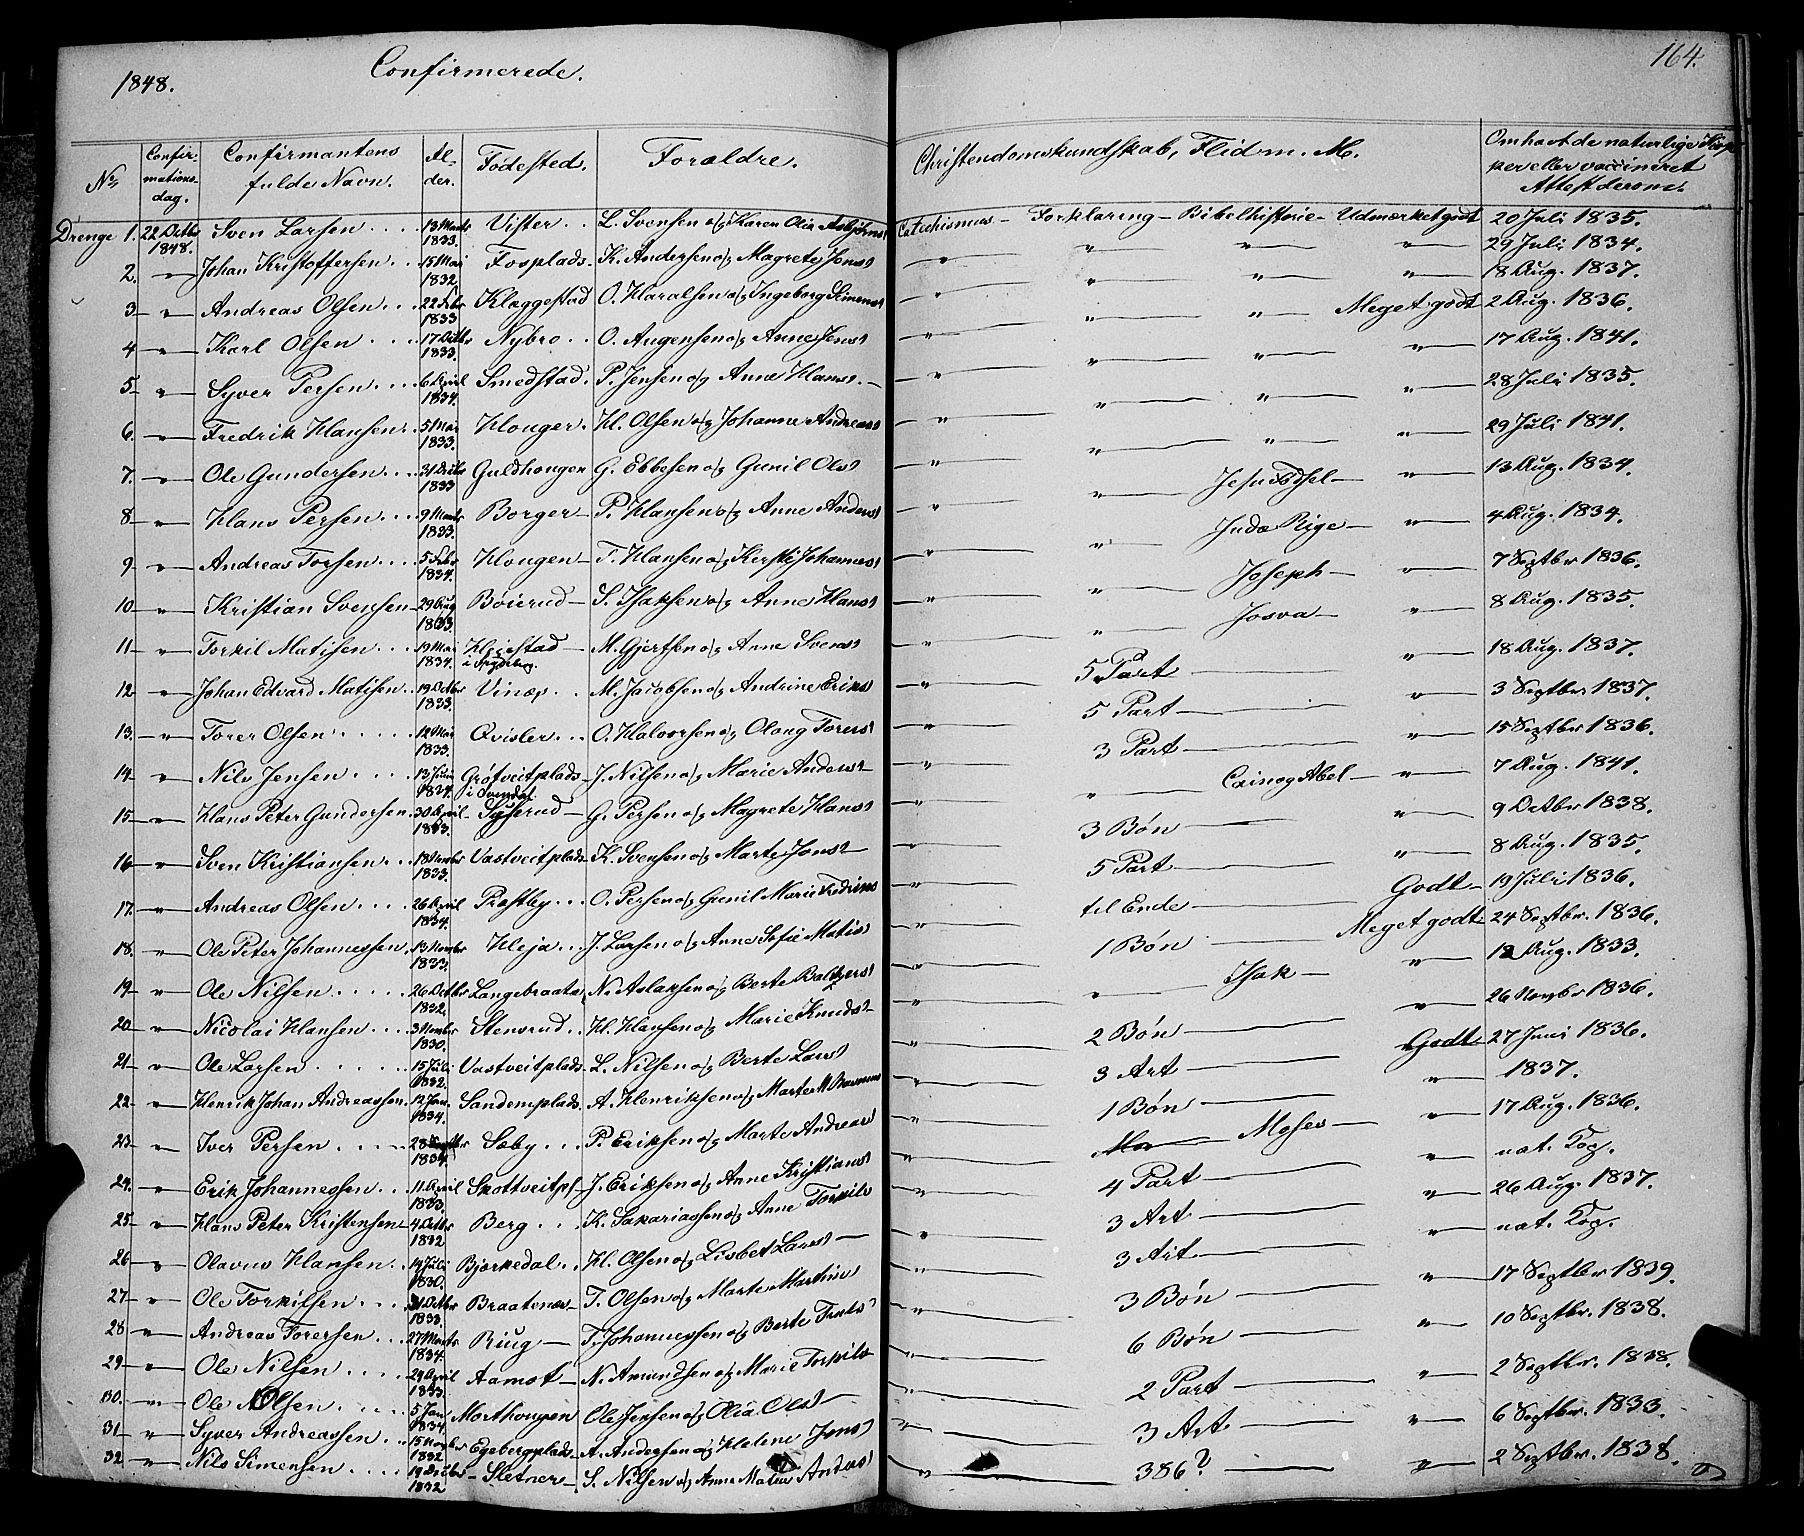 1848. Confirmerede. 164.
No Confirmationsdag. Confirmantens fulde Navn. Alder. Fødested. Foraldre. Christendomskundskab, Flid m. M. Om havt de naturlige Kopper eller vaccineret Attest derom.
Drenge 1. 22 Octbr 1848. Sven Larsen 13 Marts 1833. Vister L. Svensen og Karen Olia Asbjørns Catechismus Forklaring Bibelhistorie Udmærket godt 20 Juli 1835.
2. " Johan Kristoffersen 15 Mai 1832 Fosplads K. Andersen og Magrete Jens " " " " 29 Juli 1834.
3 " Andreas Olsen 1833 Klæggestad O. Haralsen og Ingeborg Simens " " " " 18 Aug. 1837.
4 " Karl Olsen 17 Octbr 1833. Nybro O. Augensen og Anne Jens " " " Meget godt 2 Aug. 1836.
5 " Syver Persen 6 April 1834. Smedstad P. Jensen og Anne Hans " " " " 17 Aug. 1841.
6 " Fredrik Hansen 5 Mai 1833. Houger H. Olsen og Johanne Andreas " " " " 28 Juli 1835.
7. " Ole Gundersen 31 1833 Guldhougen G. Ebbesen og Gunil Ols " " " " 29 Juli 1841.
8 " Hans Persen 9 Marts 1833. Borger P. Hansen og Anne Anders " " Jesu Fødsel " 13 Aug. 1834.
9 " Andreas Torsen 5 Febr 1834. Hougen T. Hansen og Kersti Johannes " " Juda Rige " 4 Aug. 1834.
10 " Kristian Svensen 29 Aug 1833. Bøierud S. Isaksen og Anne Hans " " Joseph " 7 Septbr 1836.
11 " Torkil Matisen 19 Mai 1834. M. Gjertsen og Anne Svens " " Josva " 8 Aug. 1835.
12 " Johan Edvard Matisen 19 Octbr 1833. Vinæs M. Jacobsen og Andrine Eriks " 5 Part " 18 Aug. 1837.
13. " Torer Olsen 12 Mai 1833. Qvisler O. Halvorsen og Oloug Torers " 5 Part " 3 Septbr 1837.
14 " Nils Jensen 13 Juni Grøtveitplads J. Nilsen og Marie Anders " 3 Part " 15 Septbr 1836.
15 " Hans Peter Gundersen 30 April 1833. Syserud G. Persen og Magrete Hans " " Cain og Abel " 7 Aug. 1841.
16 " Sven Kristiansen 1833. Vastveitplads K. Svensen og Marte Jons " 3 Bøn " 9 Octbr 1838.
17. " Andreas Olsen 26 April 1834. Prestby O. Persen og Gunil Marie " 5 Part " 8 Aug. 1835.
18. " Ole Peter Johannessen 13 Novmbr 1833. Heja J. Larsen og Anne Sofie Matis " til Ende Godt 19 Juli 1836.
19 " Ole Nilsen 26 Octbr 1832. Langebraaten N. Aslaksen og Berte " 1 Bøn Meget godt 24 Septbr. 1836.
20 " Nicolai Hansen 3 Novmbr 1830. Stensrud H. Hansen og Marie Knuds " " Isak " 12 Aug. 1833.
21 " Ole Larsen 15 Juli 1832. Vastveitplads L. Nilsen og Berte Lars " 2 Bøn " 26 Novbr 1836.
22 " Henrik Johan Andreassen 12 Jan. 1834. Sandemplads A. Henriksen og Marte M. Rasmus " 3 Art Godt 27 Juni 1836.
23 " Iver Persen 28 Septbr 1834. Søby P. Eriksen og Marte Andreas " 1 Bøn " 1837.
24 " Erik Johannessen 11 April 1833. Skottveitpl J. Eriksen og Anne Kristians " Moses " 17 Aug. 1836.
25 " Hans Peter Kristensen 4 Octbr 1832 Berg K. Sakariassen og Anne Torkils " 4 Part " nat. Kop.
26 " Olavus Hansen 14 Juli 1830. Bjørkedal H. Olsen og Lisbet Lars " 3 Art " 26 Aug. 1837.
27 " Ole Torkilsen Octbr 1833. Braatenes T. Olsen og Marte Martins " 3 Art " nat. Kop.
28 " Andreas Torersen 27 Marts 1834. Riug T. Johannessen og Berte Truls " 3 Bøn " 17 Septbr 1839.
29 " Ole Nilsen 29 April 1833. Aamot N. Amundsen og Marie Torkils " 6 Bøn " 10 Septbr. 1838.
30. " Ole Olsen 5 Jan 1834. Morthougen Ole Jensen og Olia Ols " 2 Part " 2 Septbr. 1838.
31 " Syver Andreassen 15 Novmbr 1832 Egebergplads A. Andersen og Helene Jens " 3 Art " 6 Septbr. 1833.
32 " Nils Simensen 19 1832. Sletner S. Nilsen og Anne Andreas " 386? " 2 Septbr. 1838.